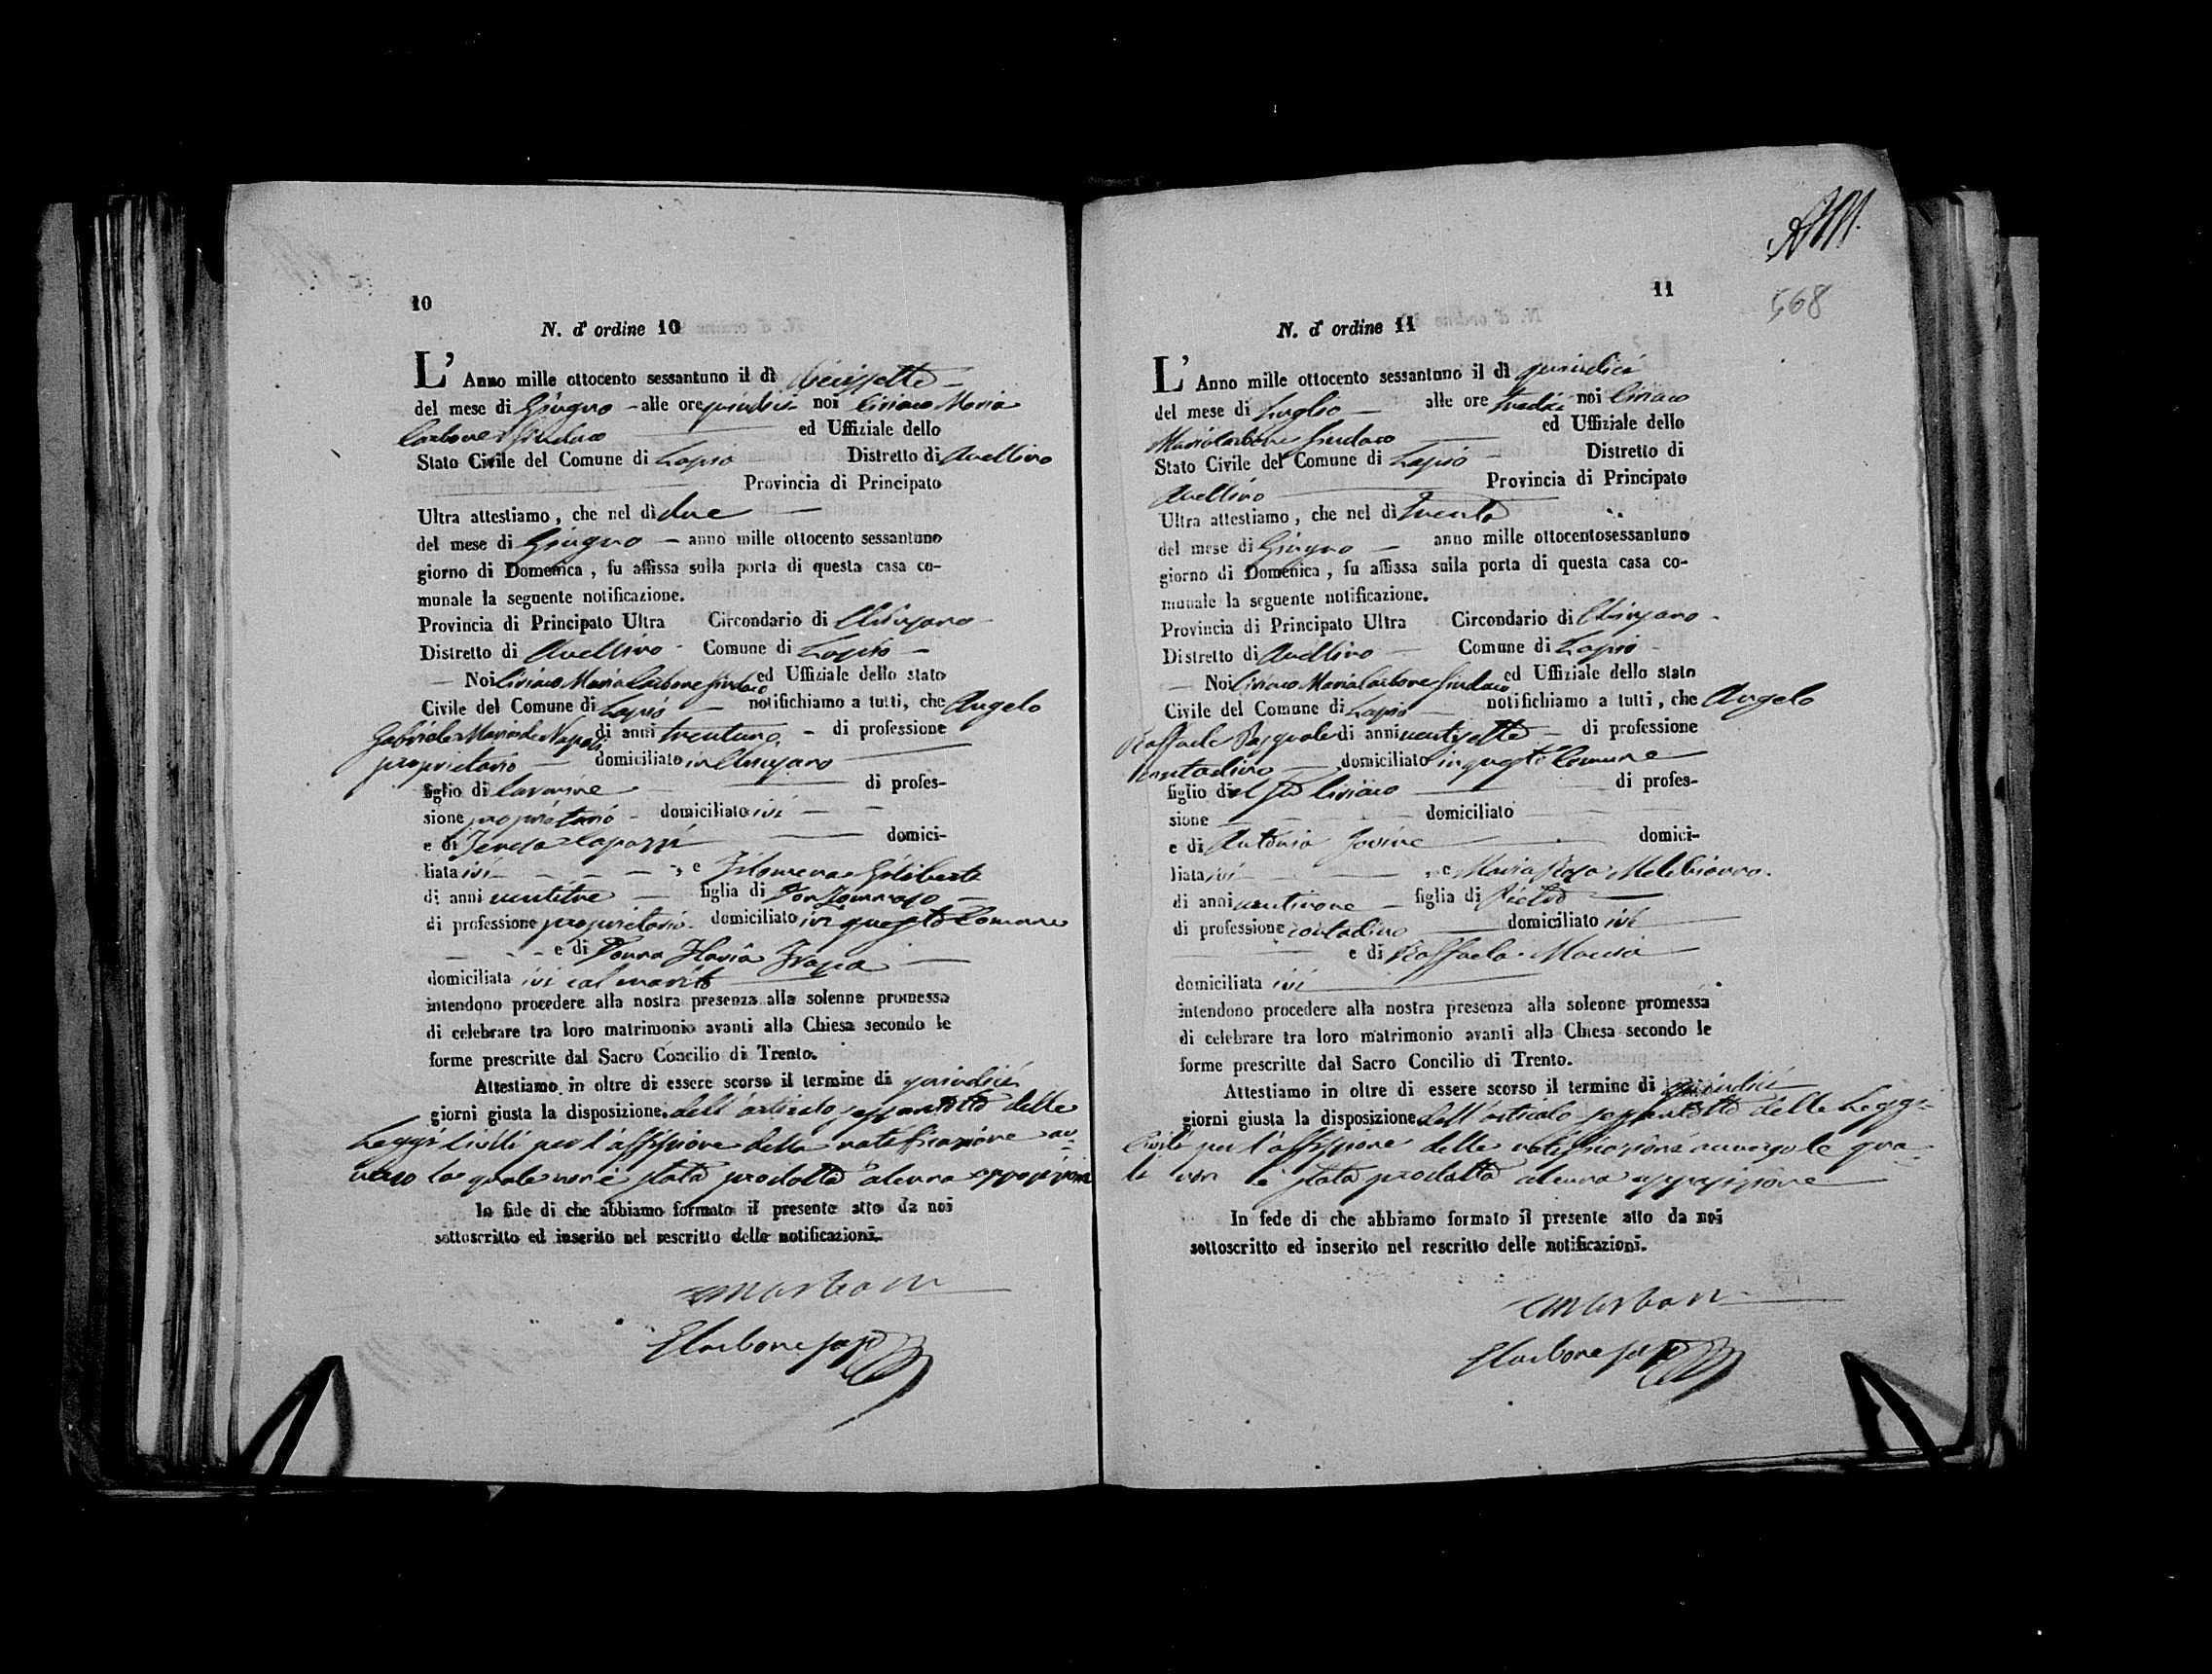 10
N. d' ordine 10
L' Anno mille ottocento sessantuno il dì diecissette
del mese di Giugno alle ore quindici noi Ciriaco Maria
Carbone Sindaco ed Uffiziale dello
Stato Civile del Comune di Lapio Distretto di Avellino
Provincia di Principato
Ultra attestiamo, che nel dì due
del mese di Giugno anno mille ottocento sessantuno
giorno di Domenica, fu affissa sulla porta di questa casa co-
munale la seguente notificazione.
Provincia di Principato Ultra Circondario di Chiusano
Distretto di Avellino Comune di Lapio
Noi Ciriaco Maria Carbone Sindaco ed Uffiziale dello stato
Civile del Comune di Lapio notifichiamo a tutti, che Angelo
Gabriele Maria de Napoli di anni trentuno di professione
proprietario domiciliato in Chiusano
figlio di Carmine di profes-
sione proprietario domiciliato ivi
e di Teresa Capozzi domici-
liata ivi , e Filomena Giliberti
di anni ventitre figlia di Don Tommaso
di professione proprietario domiciliato in questo Comune
e di Donna Flavia
domiciliata ivi col marito
intendono procedere alla nostra presenza alla solenne promessa
di celebrare tra loro matrimonio avanti alla Chiesa secondo le
forme prescritte dal Sacro Concilio di Trento.
Attestiamo in oltre di essere scorso il termine di quindici
giorni giusta la disposizione dell'articolo settantotto delle
Leggi Civili per l'affissione della notificazione av-
verso la quale non è stata prodotta alcuna opposizione
In fide di che abbiamo formato il presente atto da noi
sottoscritto ed inserito nel rescritto delle notificazioni.
CMCarbone
Carbone
11
568
N. d' ordine 11
L' Anno mille ottocento sessantuno il dì quindici
del mese di Luglio alle ore tredici noi Ciriaco
Maria Carbone Sindaco ed Uffiziale dello
Stato Civile del Comune di Lapio Distretto di
Avellino Provincia di Principato
Ultra attestiamo, che nel dì trenta
del mese di Giugno anno mille ottocentosessantuno
giorno di Domenica, fu affissa sulla porta di questa casa co-
munale la seguente notificazione.
Provincia di Principato Ultra Circondario di Chiusano
Distretto di Avellino Comune di Lapio
Noi Ciriaco Maria Carbone Sindaco ed Uffiziale dello stato
Civile del Comune di Lapio notifichiamo a tutti, che Angelo
Raffaele Pasquale di anni ventisette di professione
contadino domiciliato in questo Comune
figlio del fu Ciriaco di profes-
sione domiciliato
e di Antonia Jovine domici-
liata ivi , e Maria Rosa
di anni ventinove figlia di Pietro
di professione contadino domiciliato ivi
e di Raffaela
domiciliata ivi
intendono procedere alla nostra presenza alla solenne promessa
di celebrare tra loro matrimonio avanti alla Chiesa secondo le
forme prescritte dal Sacro Concilio di Trento.
Attestiamo in oltre di essere scorso il termine di quindici
giorni giusta la disposizione dell'articolo settantotto delle Leggi
Civili per l'affissione delle notificazioni avverso le qua-
li non è stata prodotta alcuna opposizione
In fede di che abbiamo formato il presente atto da noi
sottoscritto ed inserito nel rescritto delle notificazioni.
CMCarbone
Carbone